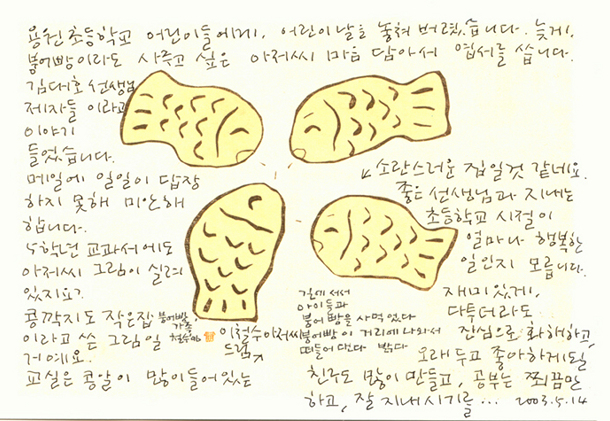 용원 초등학교 어린이들에게, 어린이날을 놓쳐 버렸습니다. 늦게,
붕어빵이라도 사주고 싶은 아저씨 마음 담아서 엽서를 씁니다.
김대호 선생님
제자들 이라고
이야기
들었습니다.
메일에 일일이 답장
하지 못해 미안해
합니다.
5학년 교과서에도
아저씨 그림이 실려
있지요?
콩깍지도 작은집
이라고 쓴 그림일
거예요.
교실은 콩알이 많이들어있는
소란스러운 집일것 같네요.
좋은 선생님과 지내는
초등학교 시절이
얼마나 행복한
일인지 모릅니다.
재미있게,
다투더라도
진심으로 화해하고,
오래두고 좋아하게될
친구도 많이 만들고, 공부는 쬐끔만
하고, 잘 지내시기를 … 2003.5.14
붕어빵
가족
이철수아저씨
드림
길에 서서
아이들과
붕어빵을 사먹었다
붕어빵이 거리에 나와서
떠들어 댄다